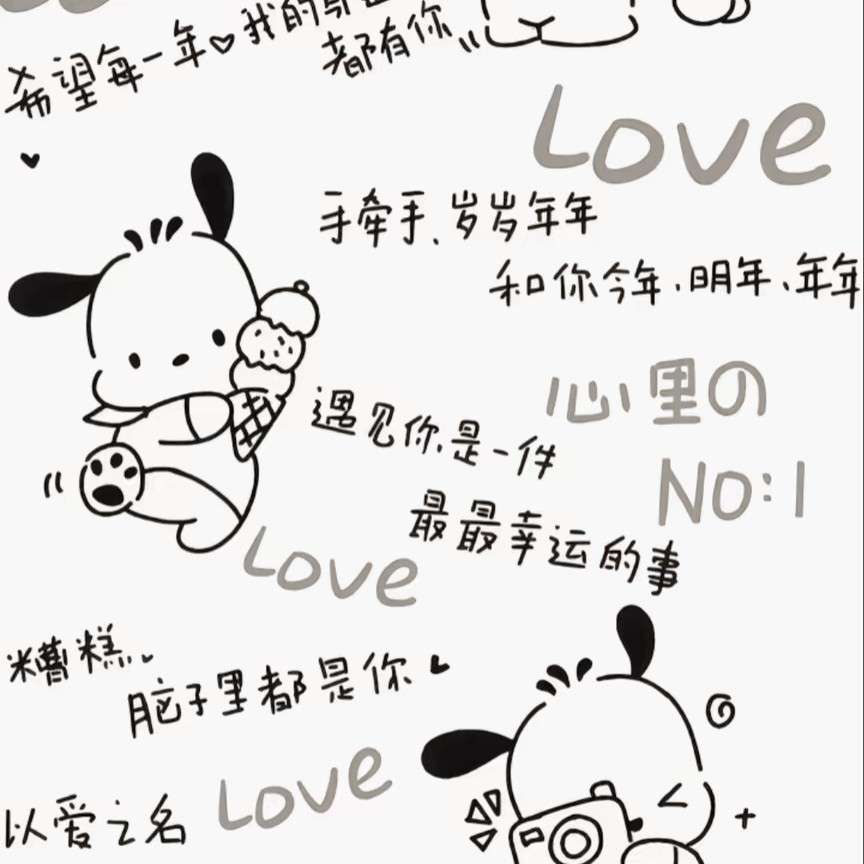 希望每一年♡我的身边
都有你
Love
手牵手、岁岁年年
和你今年、明年、年年
心里の
NO:1
遇见你是一件
最最幸运的事
Love
糟糕、
脑子里都是你
Love
以爱之名